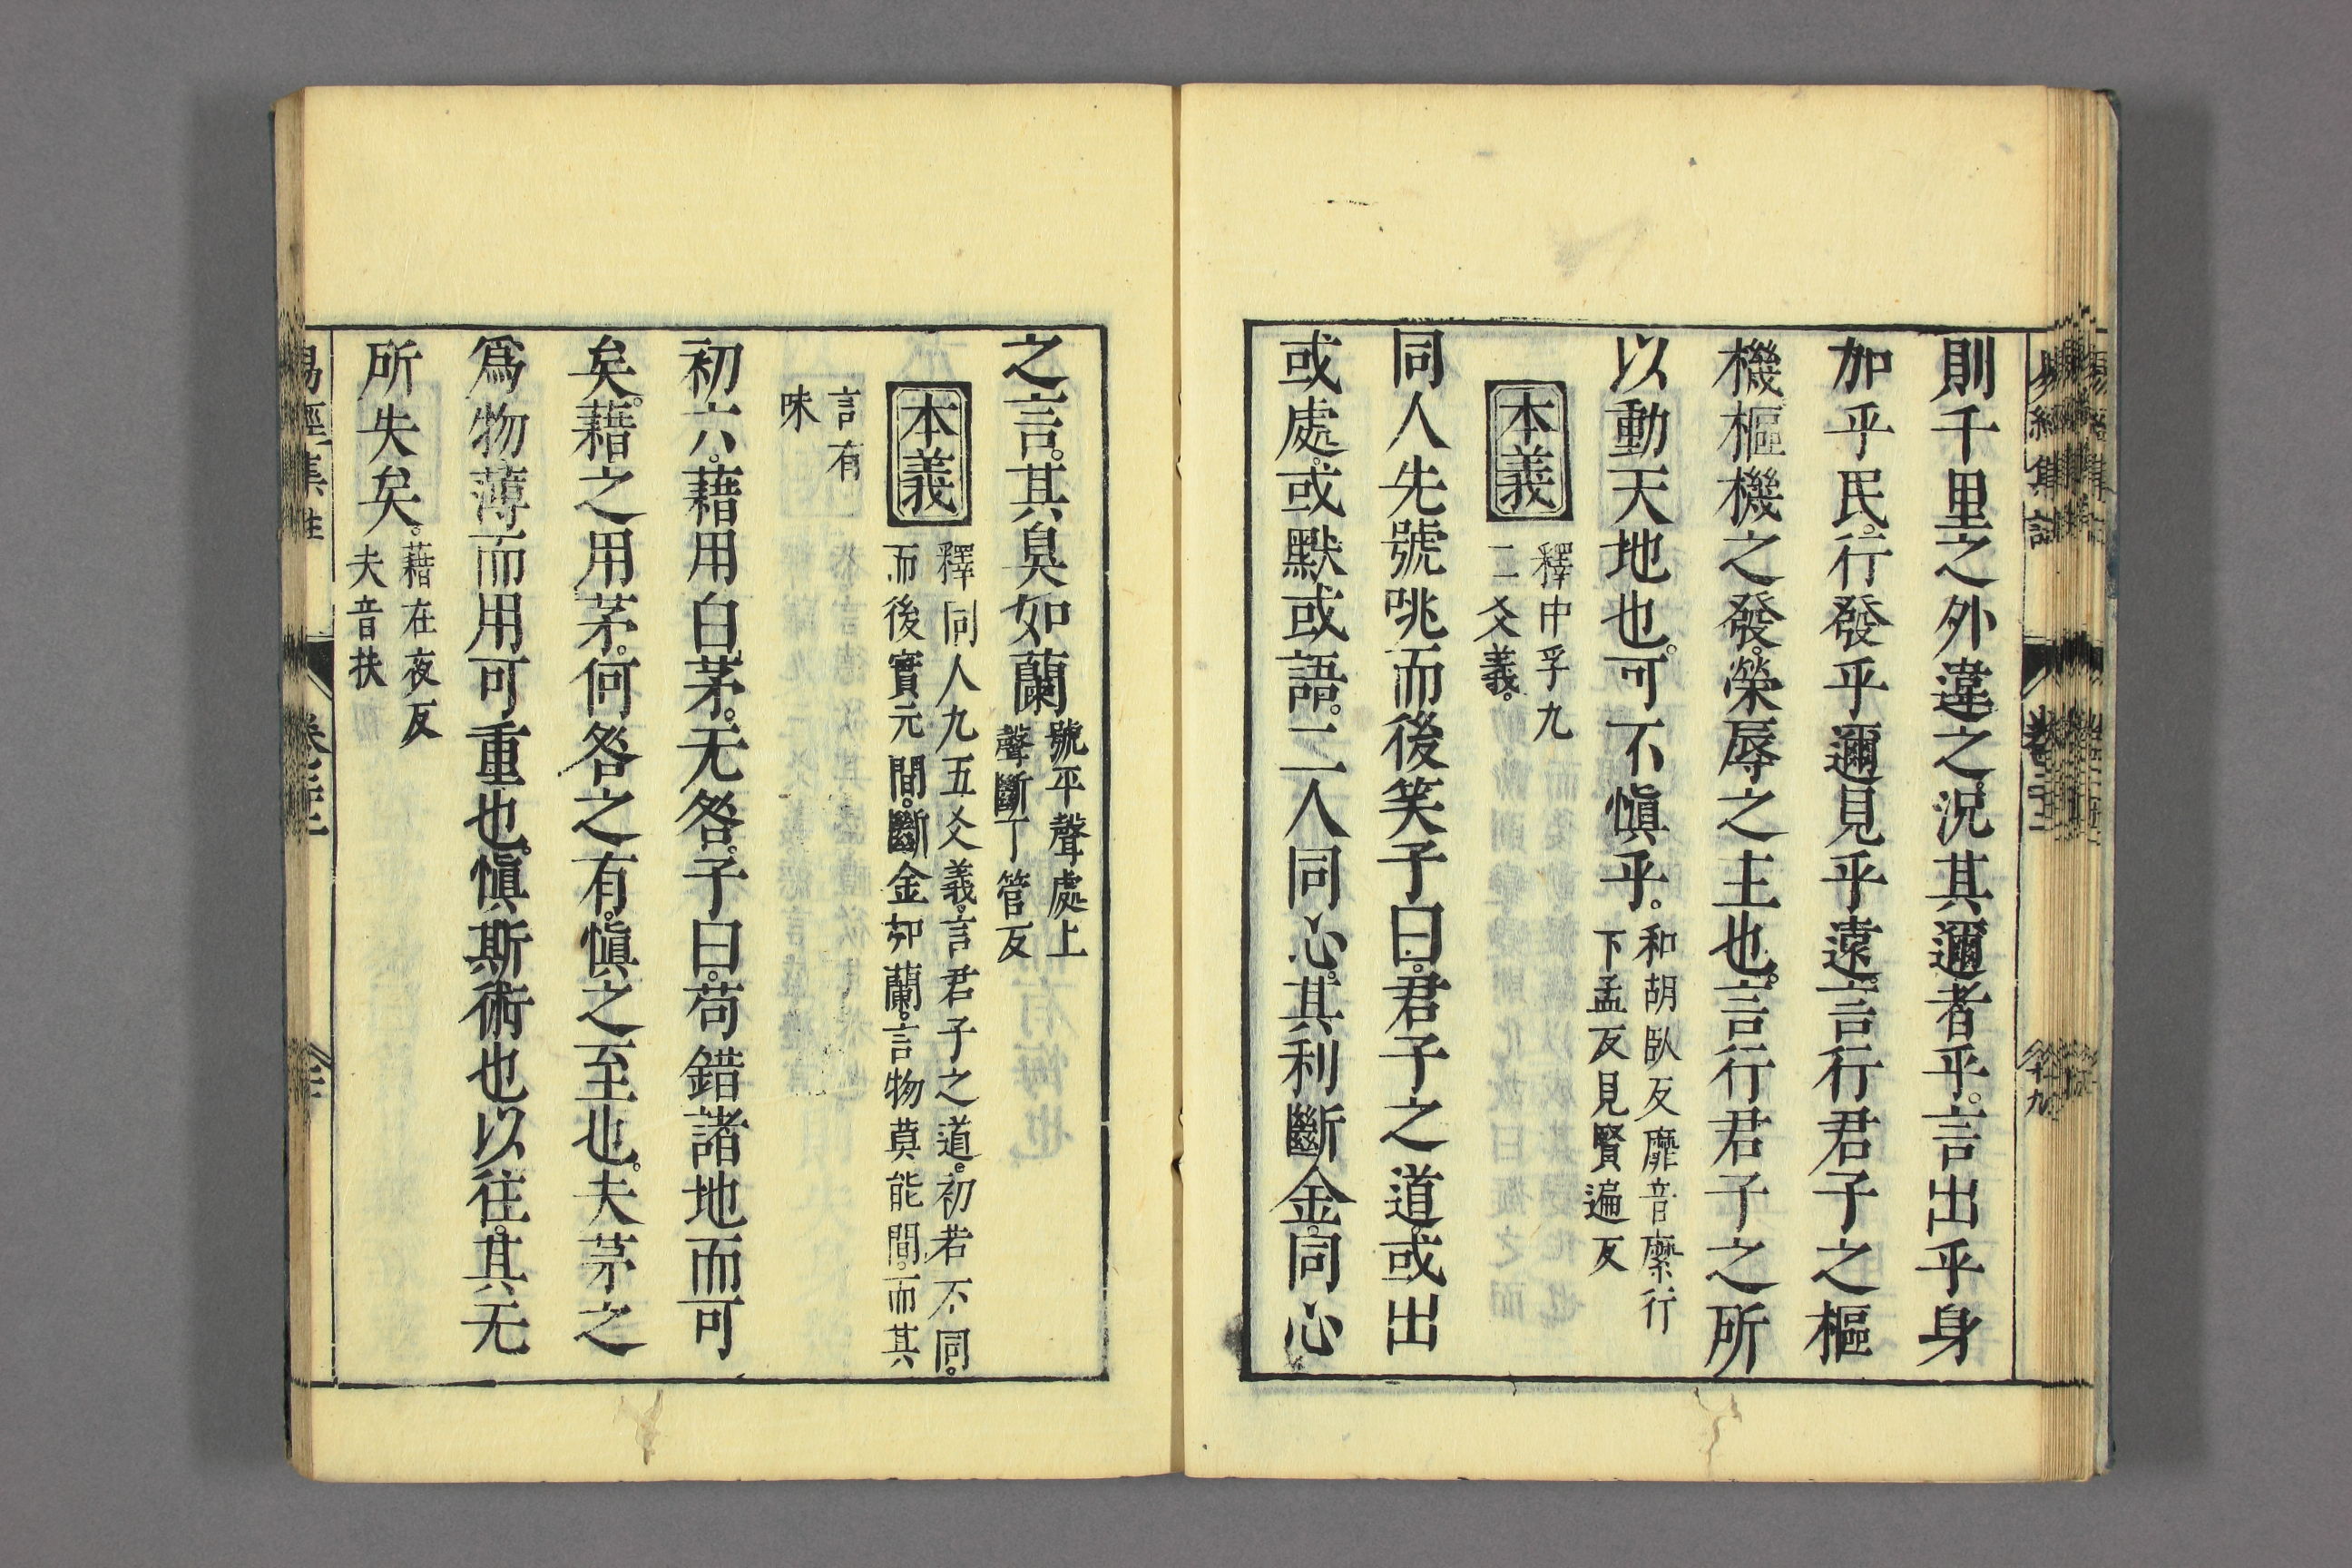 則千里之外違之况其邇者乎。言出乎身
加乎民。行發乎邇見乎遠。言行君子之樞
機樞機之發。榮辱之主也。言行君子之所
以動天地也。可不慎乎。
和胡臥反靡音縻行
下孟反見賢遍反
本義
釋中孚九
二爻義。
同人先號咷而後笑子曰。君子之道。或出
或處。或默或語。二人同心。其利斷金。同心
之言。其臭如蘭
號平聲處上
聲斷丁管反
本義
釋同人九五爻義。言君子之道。初若不同。
而後實无間。斷金如蘭。言物莫能間。而其
言有
味
初六。藉用白茅。无咎。子曰。苟錯諸地而可
矣。藉之用茅。何咎之有。慎之至也。夫茅之
爲物薄而用可重也。慎斯術也以往。其无
所失矣。
藉在夜反
夫音扶